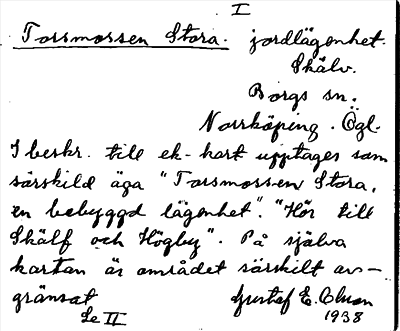 I
Torsmossen Stora. jordlägenhet.
Skälv.
Borgs sn.
Norrköping. Ögl.
I beskr. till ek-kart upptages som
särskild äga "Torsmossen Stora,
en bebyggd lägenhet". "Hör till
Skälf och Högby". På själva
kartan är området särskilt av-
gränsat Gustaf E. Olsson
Se II 1938